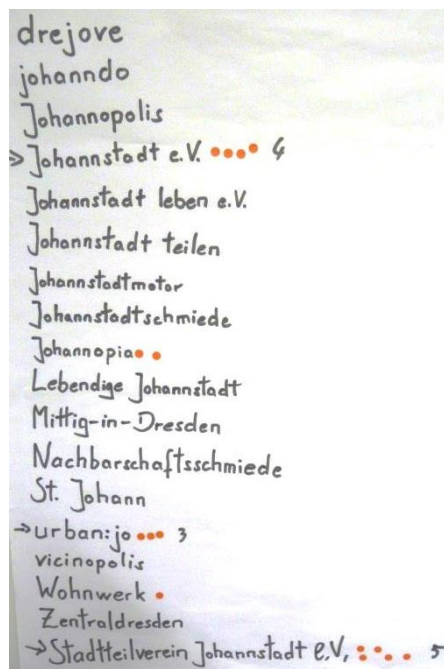 drejove
johanndo
Johannopolis
> Johannstadt e.V. •••• 4
Johannstadt leben e.V.
Johannstadt teilen
Johannstadtmotor
Johannstadtschmiede
Johannopia • •
Lebendige Johannstadt
Mittig-in-Dresden
Nachbarschaftsschmiede
St. Johann
→ urban:jo ••• 3
vicinopolis
Wohnwerk •
Zentraldresden
→ Stadtteilverein Johannstadt e.V, ••••• 5